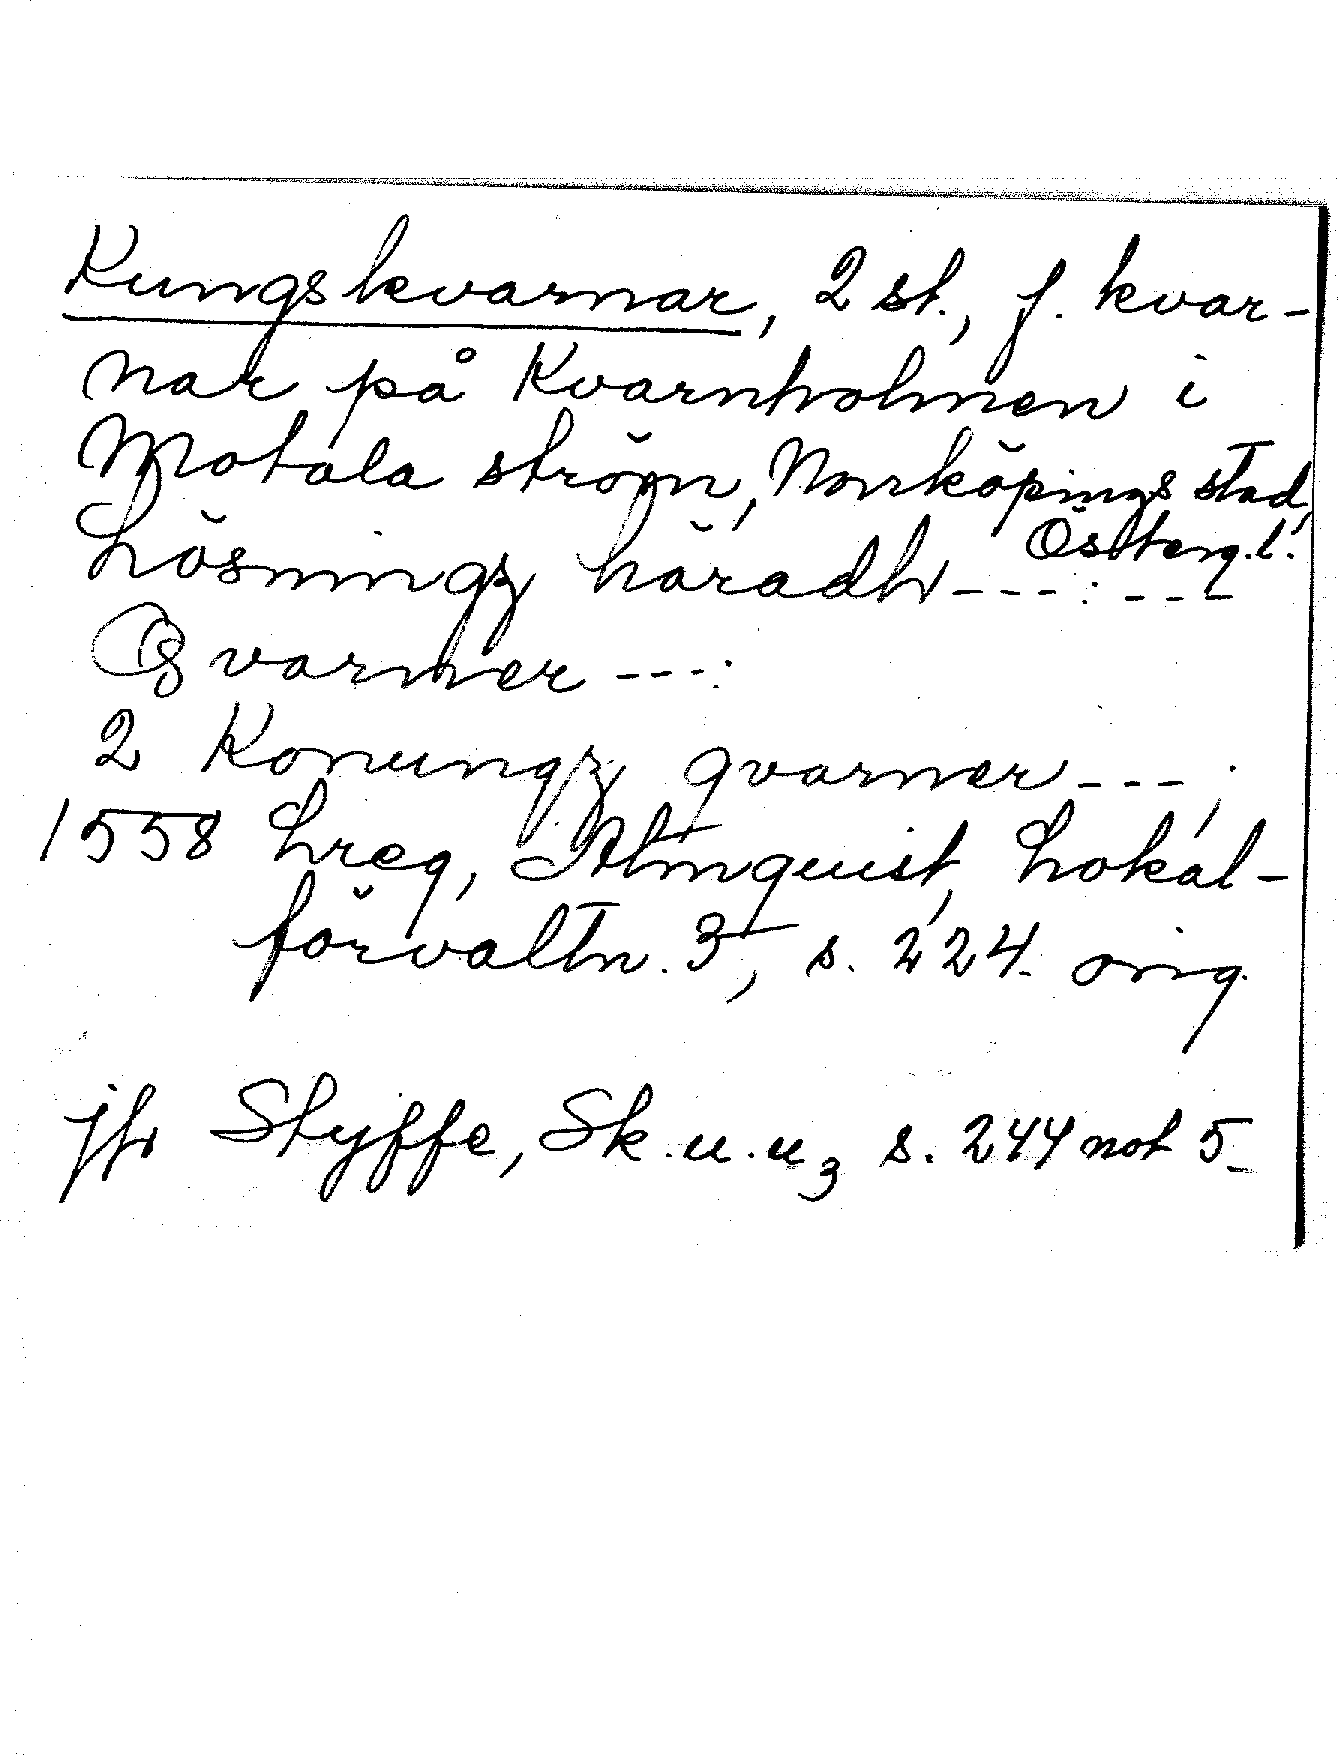 Kungskvarnar, 2 st., f. kvar-
nar på Kvarnholmen i
Motala ström, Norrköpings stad,
Österg.l.
Lösningz häradh---:---
Qvarner---:
2 Konungz qvarner---;
1558 Lreg, Almquist, Lokal-
förvaltn. 3, s. 224. orig.
jfr Styffe, Sk.u.u3 s. 244 not 5.